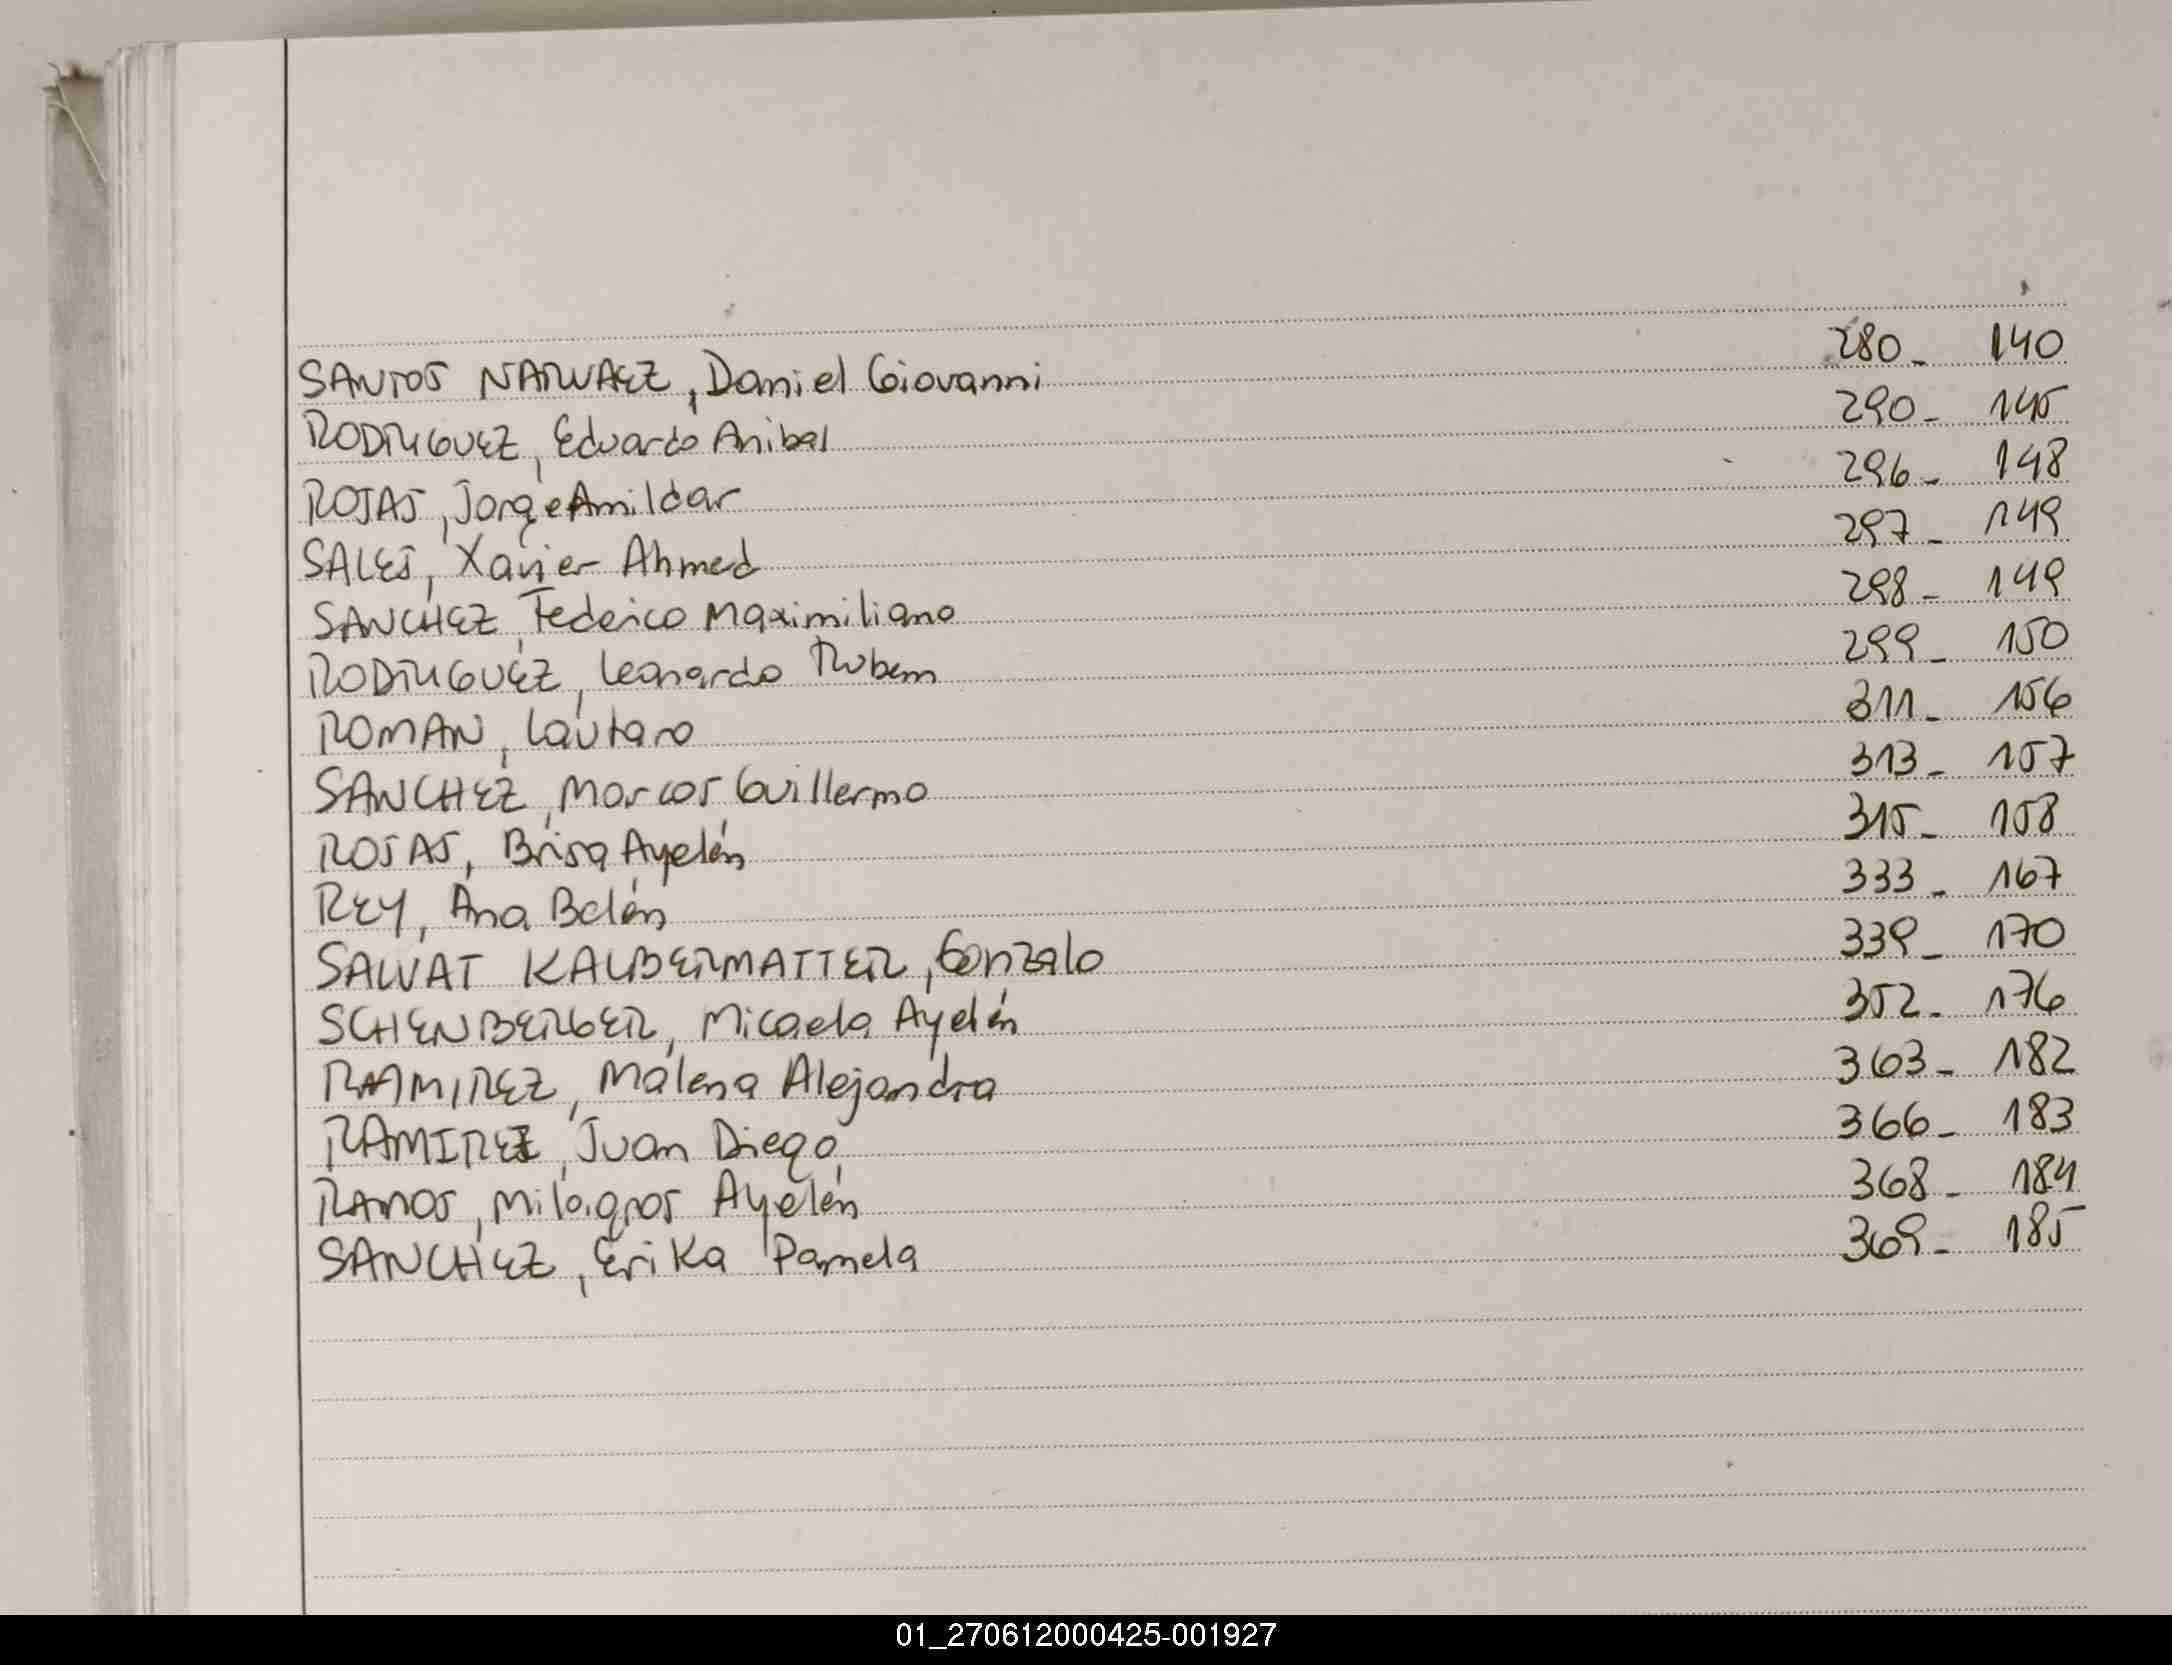 SANTOS NARVAEZ, Daniel Giovanni 280- 140
RODRIGUEZ, Eduardo Anibal 290- 145
ROJAS, Jorge Amilcar 296- 148
SALES, Xavier Ahmed 297- 149
SANCHEZ, Federico Maximiliano 298- 149
RODRIGUEZ, Leonardo Ruben 299- 150
ROMAN, Lautaro 311- 156
SANCHEZ, Marcos Guillermo 313- 157
ROJAS, Brisa Ayelén 315- 158
REY, Ana Belén 333- 167
SALVAT KALBERMATTER, Gonzalo 339- 170
SCHENBERGER, Micaela Ayelén 352- 176
RAMIREZ, Malena Alejandra 363- 182
RAMIREZ, Juan Diego 366- 183
RAMOS, Milagros Ayelén 368- 184
SANCHEZ, Erika Pamela 369- 185
01_270612000425-001927